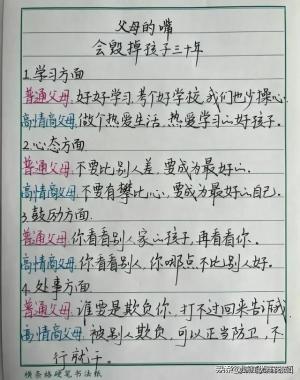 父母的嘴
会毁掉孩子三十年
1.学习方面
普通父母:好好学习,考个好学校,我们也少操心.
高情商父母:做个热爱生活,热爱学习的好孩子。
2.心态方面
普通父母:不要比别人差,要成为最好的.
高情商父母:不要有攀比心,要成为最好的自己.
3.鼓励方面
普通父母:你看看别人家的孩子,再看看你.
高情商父母:你看看别人,你哪点不比别人好.
4.处事方面
普通父母:谁要是欺负你,打不过回来告诉我
高情商父母:被别人欺负,可以正当防卫,不
行就干.
横条格硬笔书法纸
头条